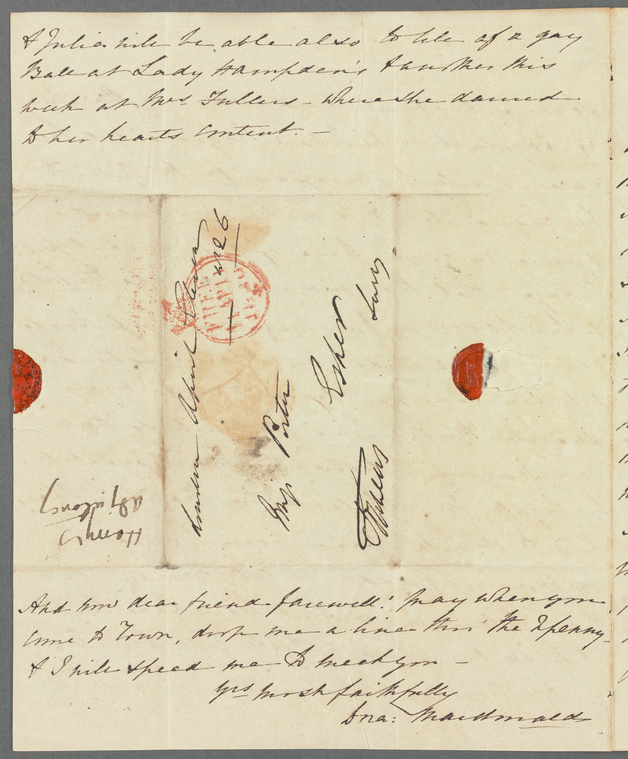 & Julia will be able also to tell of a gay
Ball at Lady Hampden's & another this
week at Mrs Fullers - where she danced
to her hearts content. -
London April Eleven
1826
Miss Porter
Esher
Surry
FREE
And now dear friend farewell! pray when you
come to Town, drop me a line thro' the 2penny -
& I will speed me to meet you -
Yrs most faithfully
Macdonald